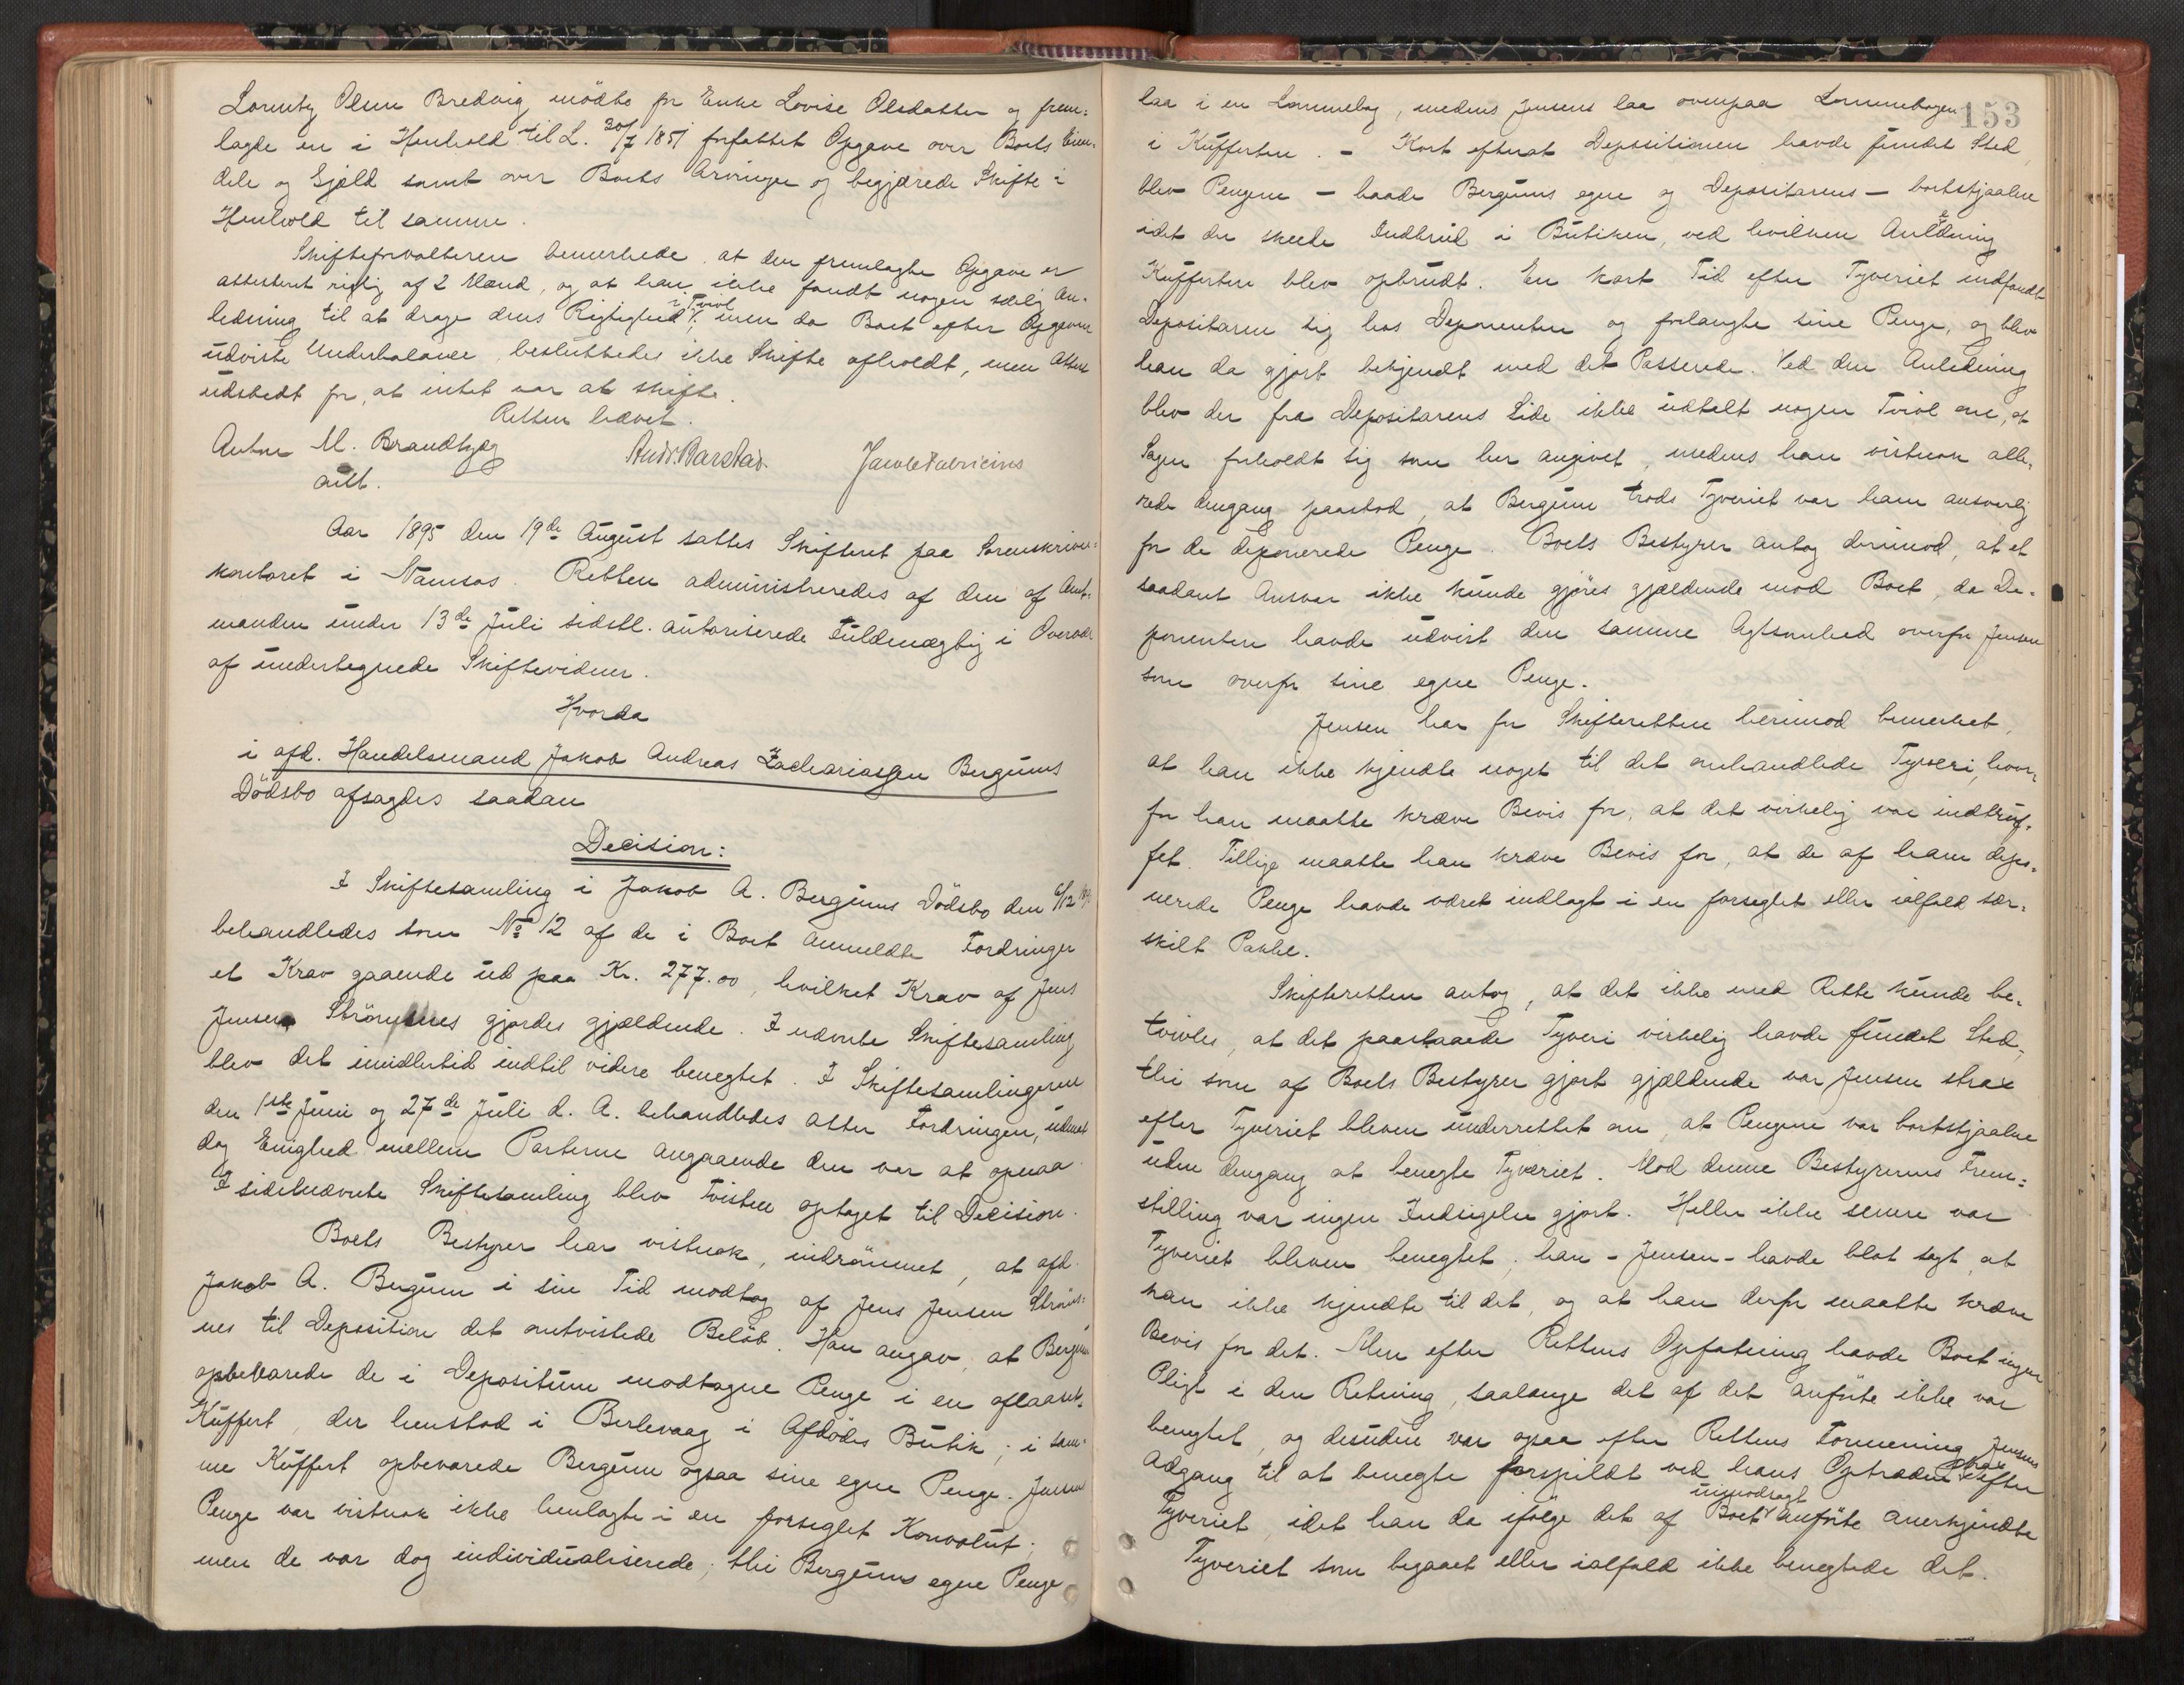 Lorentz Olsen Bredvig mödte for Enke Lovise Olsdatter og frem-
lagde en i Henhold til L. 30/7 1851 forfattet Opgave over Boets Eien-
dele og Gjæld samt over Boets Arvinger og begjærede Skifte i
Henhold til samme.
Skifteforvalteren bemerkede, at den fremlagte Opgave er
attesteret rigtig af 2 Mænd, og at han ikke fandt nogen særlig An-
ledning til at drage dens Rigtighed i Tvivl, men da Boet efter Opgaven
udviste Underbalance, besluttedes ikke Skifte afholdt, men Attest
udstedt for, at intet var at skifte.
Retten hævet.
Anton M. Brandtzæg Andr. Barstad Jacob Fabricius
aut.
Aar 1895 den 19de August sattes Skifteret paa Sorenskriver-
kontoret i Namsos. Retten administreredes af den af Amt-
manden under 13de Juli sidstl. autoriserede Fuldmægtig i Overvær
af undertegnede Skiftevidner.
Hvorda
i afd. Handelsmand Jakob Andreas Zachariassen Bergums
Dödsbo afsagdes saadan
Decision:
I Skiftesamling i Jakob A. Bergums Dödsbo den 6/12
behandledes som No 12 af de i Boet anmeldte Fordringer
et Krav gaaende ud paa Kr. 277.00, hvilket Krav af Jens
Jensen Strömsnes gjordes gjældende. I nævnte Skiftesamling
blev det imidlertid indtil videre benegtet. I Skiftesamlingerne
den 1ste Juni og 27de Juli d. A. behandledes atter Fordringen, uden at
dog Enighed mellem Parterne angaaende den var at opnaa.
I sidstnævnte Skiftesamling blev Tvisten optaget til Decision.
Boets Bestyrer har vistnok, indrömmet, at afd.
Jakob A. Bergum i sin Tid modtog af Jens Jensen Ströms-
nes til Deposition det omtvistede Belöb. Han angav, at Bergum
opbevarede de i Depositum modtagne Penge i en aflaaset
Kuffert, der henstod i Berlevaag i Afdödes Butik; i sam-
me Kuffert opbevarede Bergum ogsaa sine egne Penge. Jensens
Penge var vistnok ikke henlagte i en forseglet Konvolut;
men de var dog individualiserede; thi Bergums egne Penge
153
laa i en Lommebog, medens Jensens laa ovenpaa Lommebogen
i Kufferten. - Kort efterat Depositionen havde fundet Sted,
blev Pengene - baade Bergums egne og Depositarens - bortstjaalne
idet der skede Indbrud i Butiken, ved hvilken Anledning
Kufferten blev opbrudt. En kort Tid efter Tyveriet indfandt
Depositaren sig hos Deponenten og forlangte sine Penge, og blev
han da gjort bekjendt med det Passerede. Ved den Anledning
blev der fra Depositarens Side ikke udtalt nogen Tvivl om, at
Sagen forholdt sig som her angivet, medens han vistnok alle-
rede dengang paastod, at Bergum trods Tyveriet var ham ansvarlig
for de deponerede Penge. Boets Bestyrer antog derimod, at et
saadant Ansvar ikke kunde gjöres gjældende mod Boet, da De-
ponenten havde udvist den samme Agtsomhed overfor Jensens
som overfor sine egne Penge.
Jensen har for Skifteretten herimod bemerket,
at han ikke kjendte noget til det omhandlede Tyveri, hvor-
for han maatte kræve Bevis for, at det virkelig var indtruf-
fet. Tillige maatte han kræve Bevis for, at de af ham depo-
nerede Penge havde været indlagt i en forseglet eller ialfald sær-
skilt Pakke.
Skifteretten antog, at det ikke med Rette kunde be-
tvivles, at det paastaaede Tyveri virkelig havde fundet Sted,
thi som af Boets Bestyrer gjort gjældende var Jensen strax
efter Tyveriet bleven underrettet om, at Pengene var bortstjaalne
uden dengang at benegte Tyveriet. Mod denne Bestyrerens Frem-
stilling var ingen Indsigelse gjort. Heller ikke senere var
Tyveriet bleven benegtet; han - Jensen - havde blot sagt, at
han ikke kjendte til det, og at han derfor maatte kræve
Bevis for det. Men efter Rettens Opfatning havde Boet ingen
Pligt i den Retning, saalænge det af det anförte ikke var
benegtet, og desuden var ogsaa efter Rettens Formening Jensens
Adgang til at benegte forspildt ved hans Optræden strax efter
Tyveriet, idet han da ifölge det af Boet uimodsagt anförte anerkjendte
Tyveriet som begaaet eller ialfald ikke benegtede det.